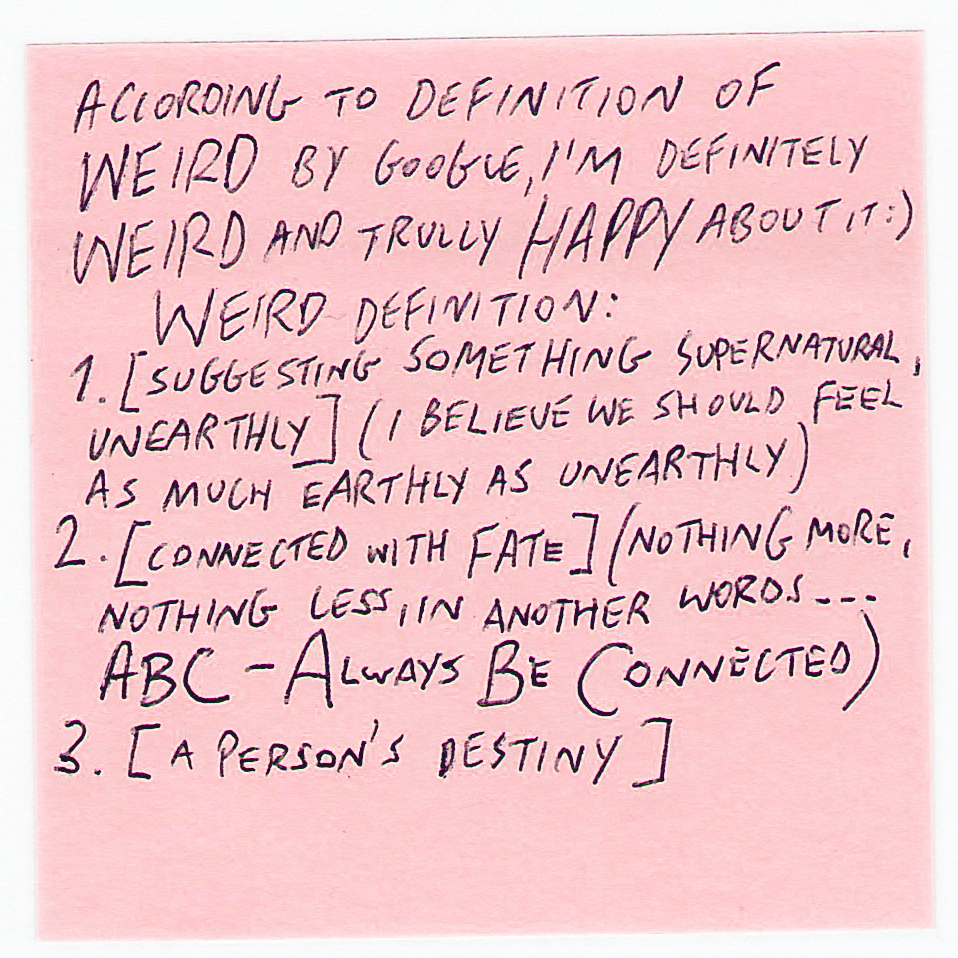 ACCORDING TO DEFINITION OF
WEIRD BY GOOGLE, I'M DEFINITELY
WEIRD AND TRULLY HAPPY ABOUT IT:)
WEIRD DEFINITION:
1. [SUGGESTING SOMETHING SUPERNATURAL,
UNEARTHLY] (I BELIEVE WE SHOULD FEEL
AS MUCH EARTHLY AS UNEARTHLY)
2. [CONNECTED WITH FATE] (NOTHING MORE,
NOTHING LESS, IN ANOTHER WORDS...
ABC - ALWAYS BE CONNECTED)
3. [A PERSON'S DESTINY]